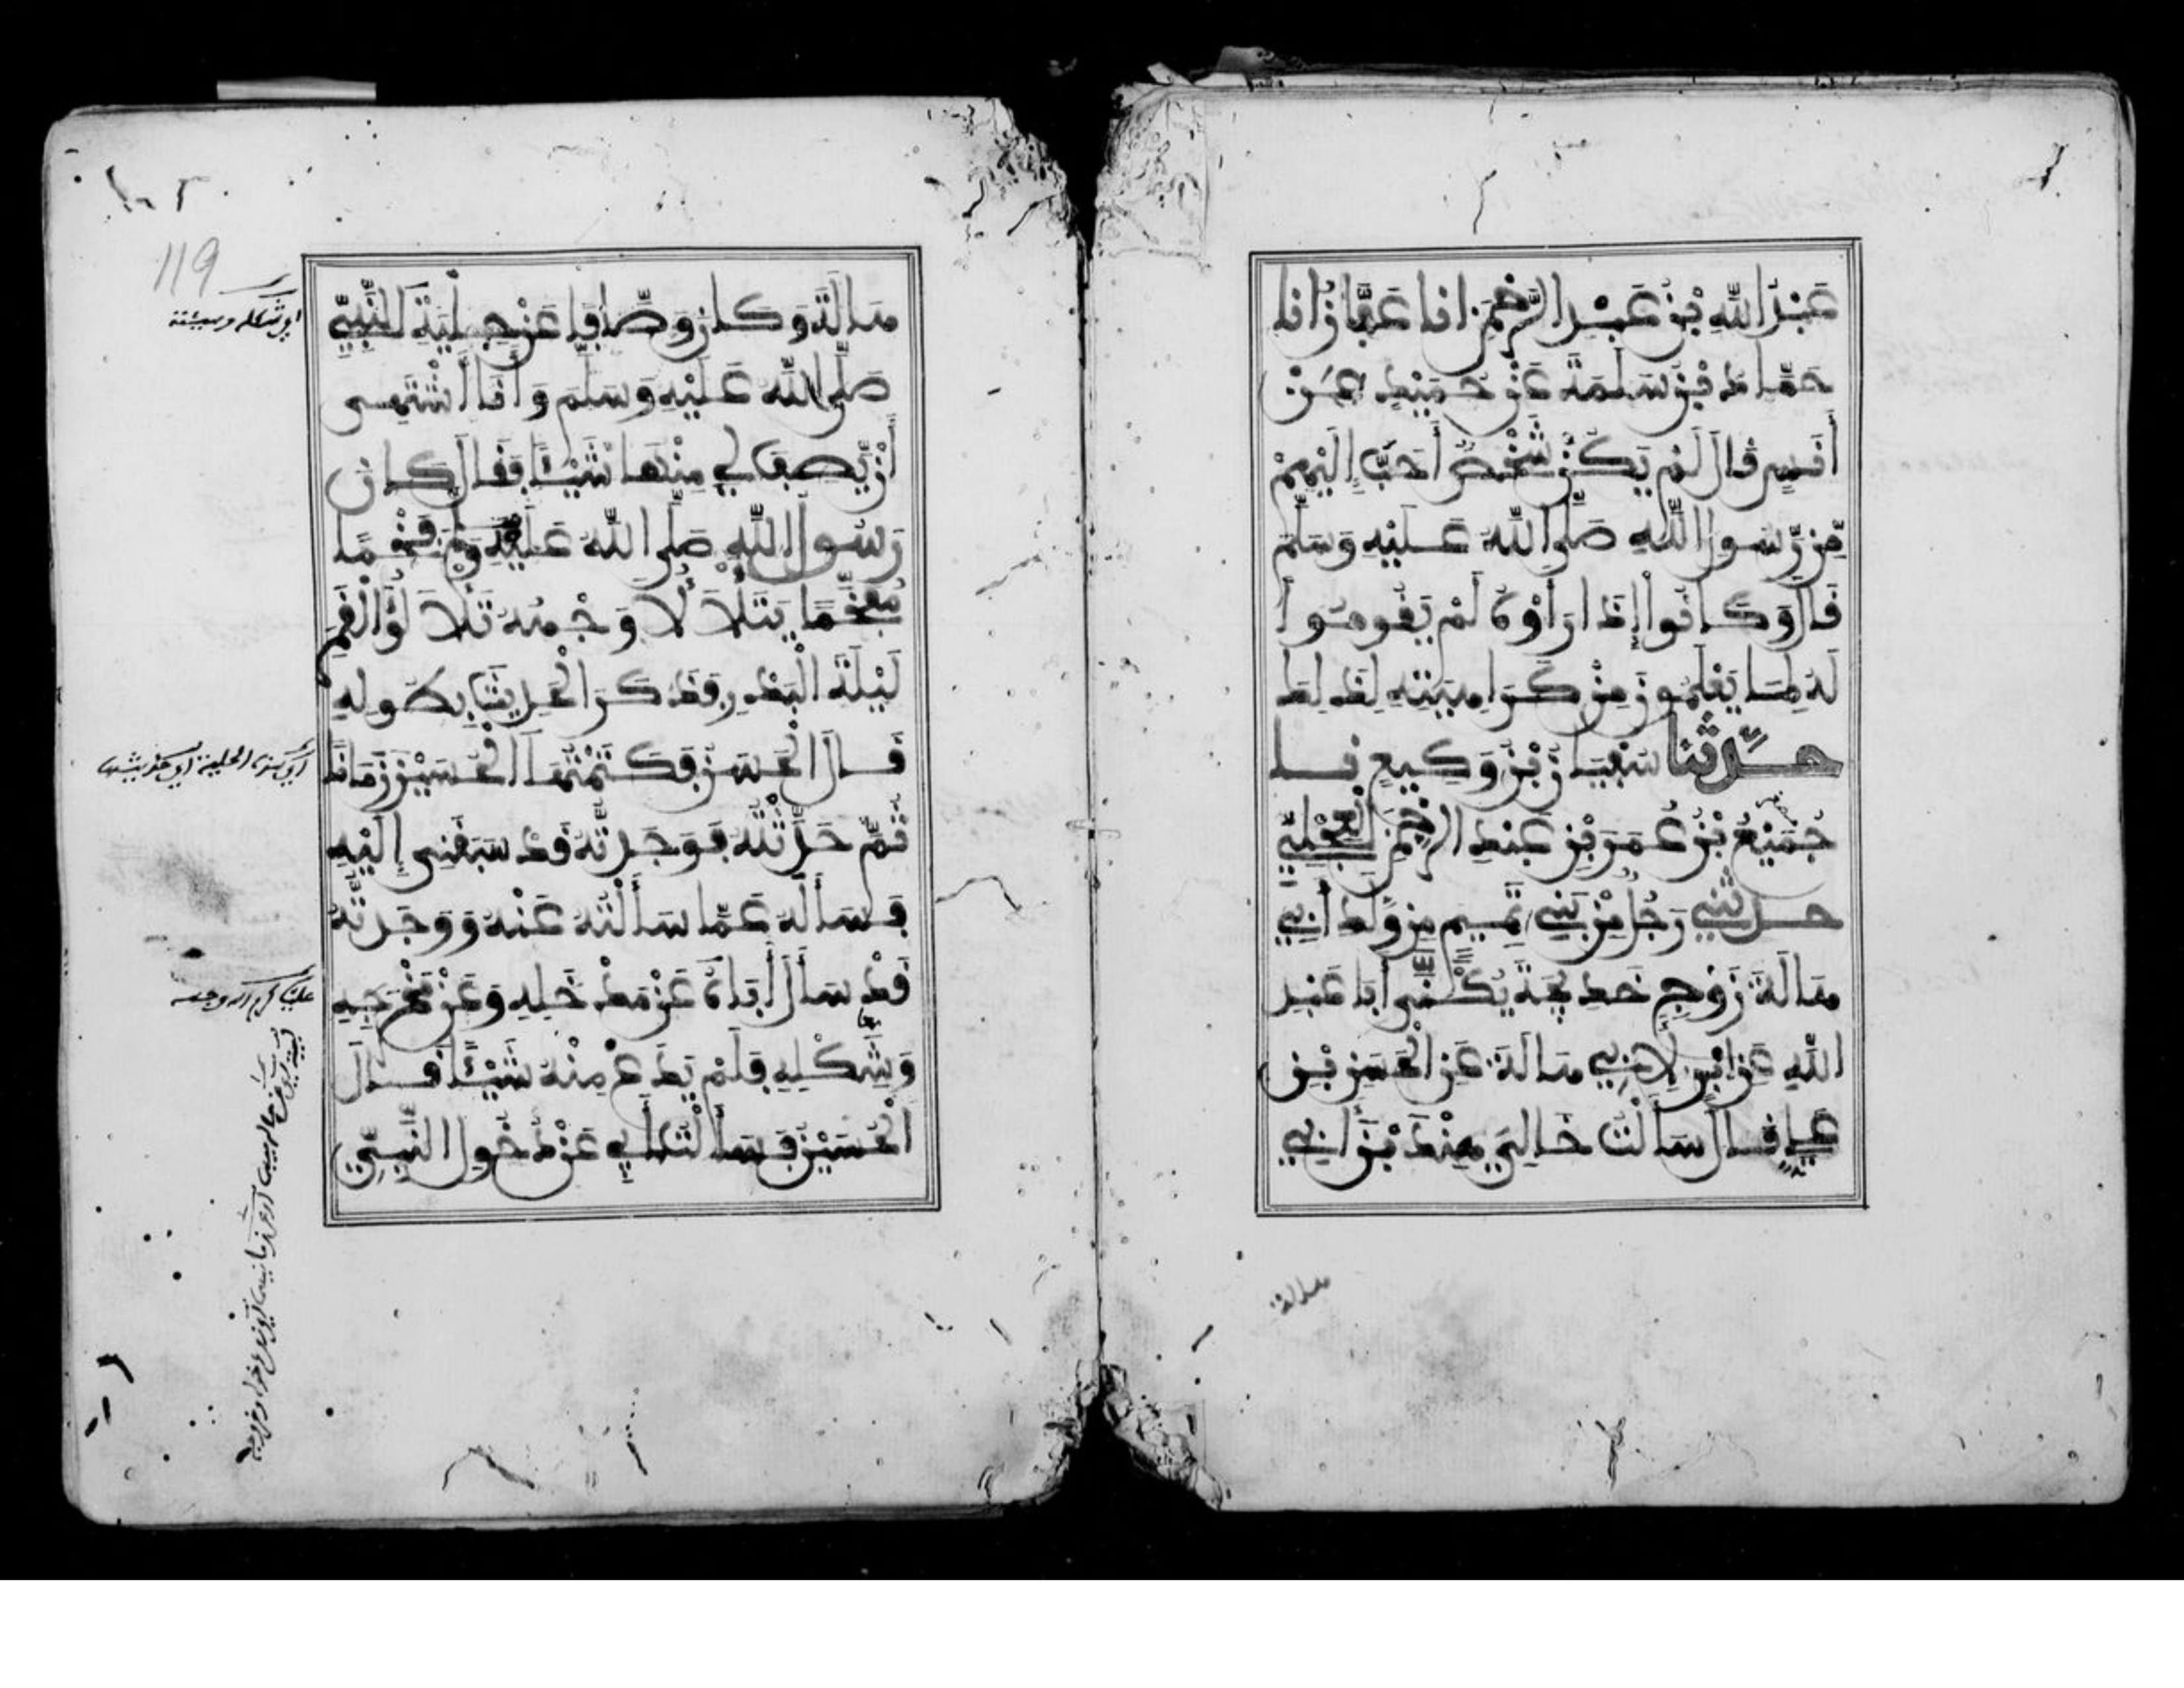 عَبْدُ اللَّهِ بْنُ عَبْدِ الرَّحْمَنِ انا عَفَّانُ انا
حَمَّادُ بْنُ سَلَمَةَ عَنْ حُمَيْدٍ عَنْ
أَنَسٍ قَالَ لَمْ يَكُنْ شَخْصٌ أَحَبَّ إِلَيْهِمْ
مِّن رَّسُولِ اللَّهِ صَلَّى اللَّهُ عَلَيْهِ وَسَلَّمَ
قَالَ وَكَانُوا إِذَا رَأَوْهُ لَمْ يَقُومُوا
لَهُ لِمَا يَعْلَمُونَ مِنْ كَرَاهِيَتِهِ لِذَلِكَ
حدَّثنا سُفْيَانُ بْنُ وَكِيعٍ نا
جُمَيْعُ بْنُ عُمَرَ بْنِ عَبْدِ الرَّحْمَنِ الْعِجْلِيِّ
حدثَنِي رَجُلٌ مِّنْ بَنِي تَمِيمٍ مِن وَلَدِ أَبِي
هَالَةَ زَوْجِ خَدِيجَةَ يُكْنَى أَبَا عَبْدِ
اللَّهِ عَنِ ابْنٍ لِأَبِي هَالَةَ عَنِ الْحَسَنِ بْنِ
عَلِيٍّ قَالَ سَأَلْتُ خَالِي هِنْدَ بْنَ أَبِي
هالة
هَالَةَ وَكَانَ وَصَّافًا عَنْ حِلْيَةِ النَّبِيِّ
صَلَّى اللَّهُ عَلَيْهِ وَسَلَّمَ وَأَنَا أَشْتَهِي
أَنْ يَصِفَ لِي مِنْهَا شَيْئًا فَقَالَ كَانَ
رَسُولُ اللَّهِ صَلَّى اللَّهُ عَلَيْهِ وَسَلَّمَ فَخْمًا
مُفَخَّمًا يَتَلَأْلَأُ وَجْهُهُ تَلَأْلُؤَ الْقَمَرِ
لَيْلَةَ الْبَدْرِ فَذَكَرَ الْحَدِيثَ بِطُولِهِ
قَالَ الْحَسَنُ فَكَتَمْتُهَا الْحُسَيْنَ زَمَانًا
ثُمَّ حَدَّثْتُهُ فَوَجَدتُّهُ قَدْ سَبَقَنِي إِلَيْهِ
فَسَأَلَهُ عَمَّا سَأَلْتُهُ عَنْهُ وَوَجَدتُّهُ
قَدْ سَأَلَ أَبَاهُ عَنْ مَدْخَلِهِ وَعَنْ مَخْرَجِهِ
وَشَكْلِهِ فَلَمْ يَدَعْ مِنْهُ شَيْئًا قَالَ
الْحُسَيْنُ فَسَأَلْتُ أَبِي عَنْ دُخُولِ النَّبِيِّ
119